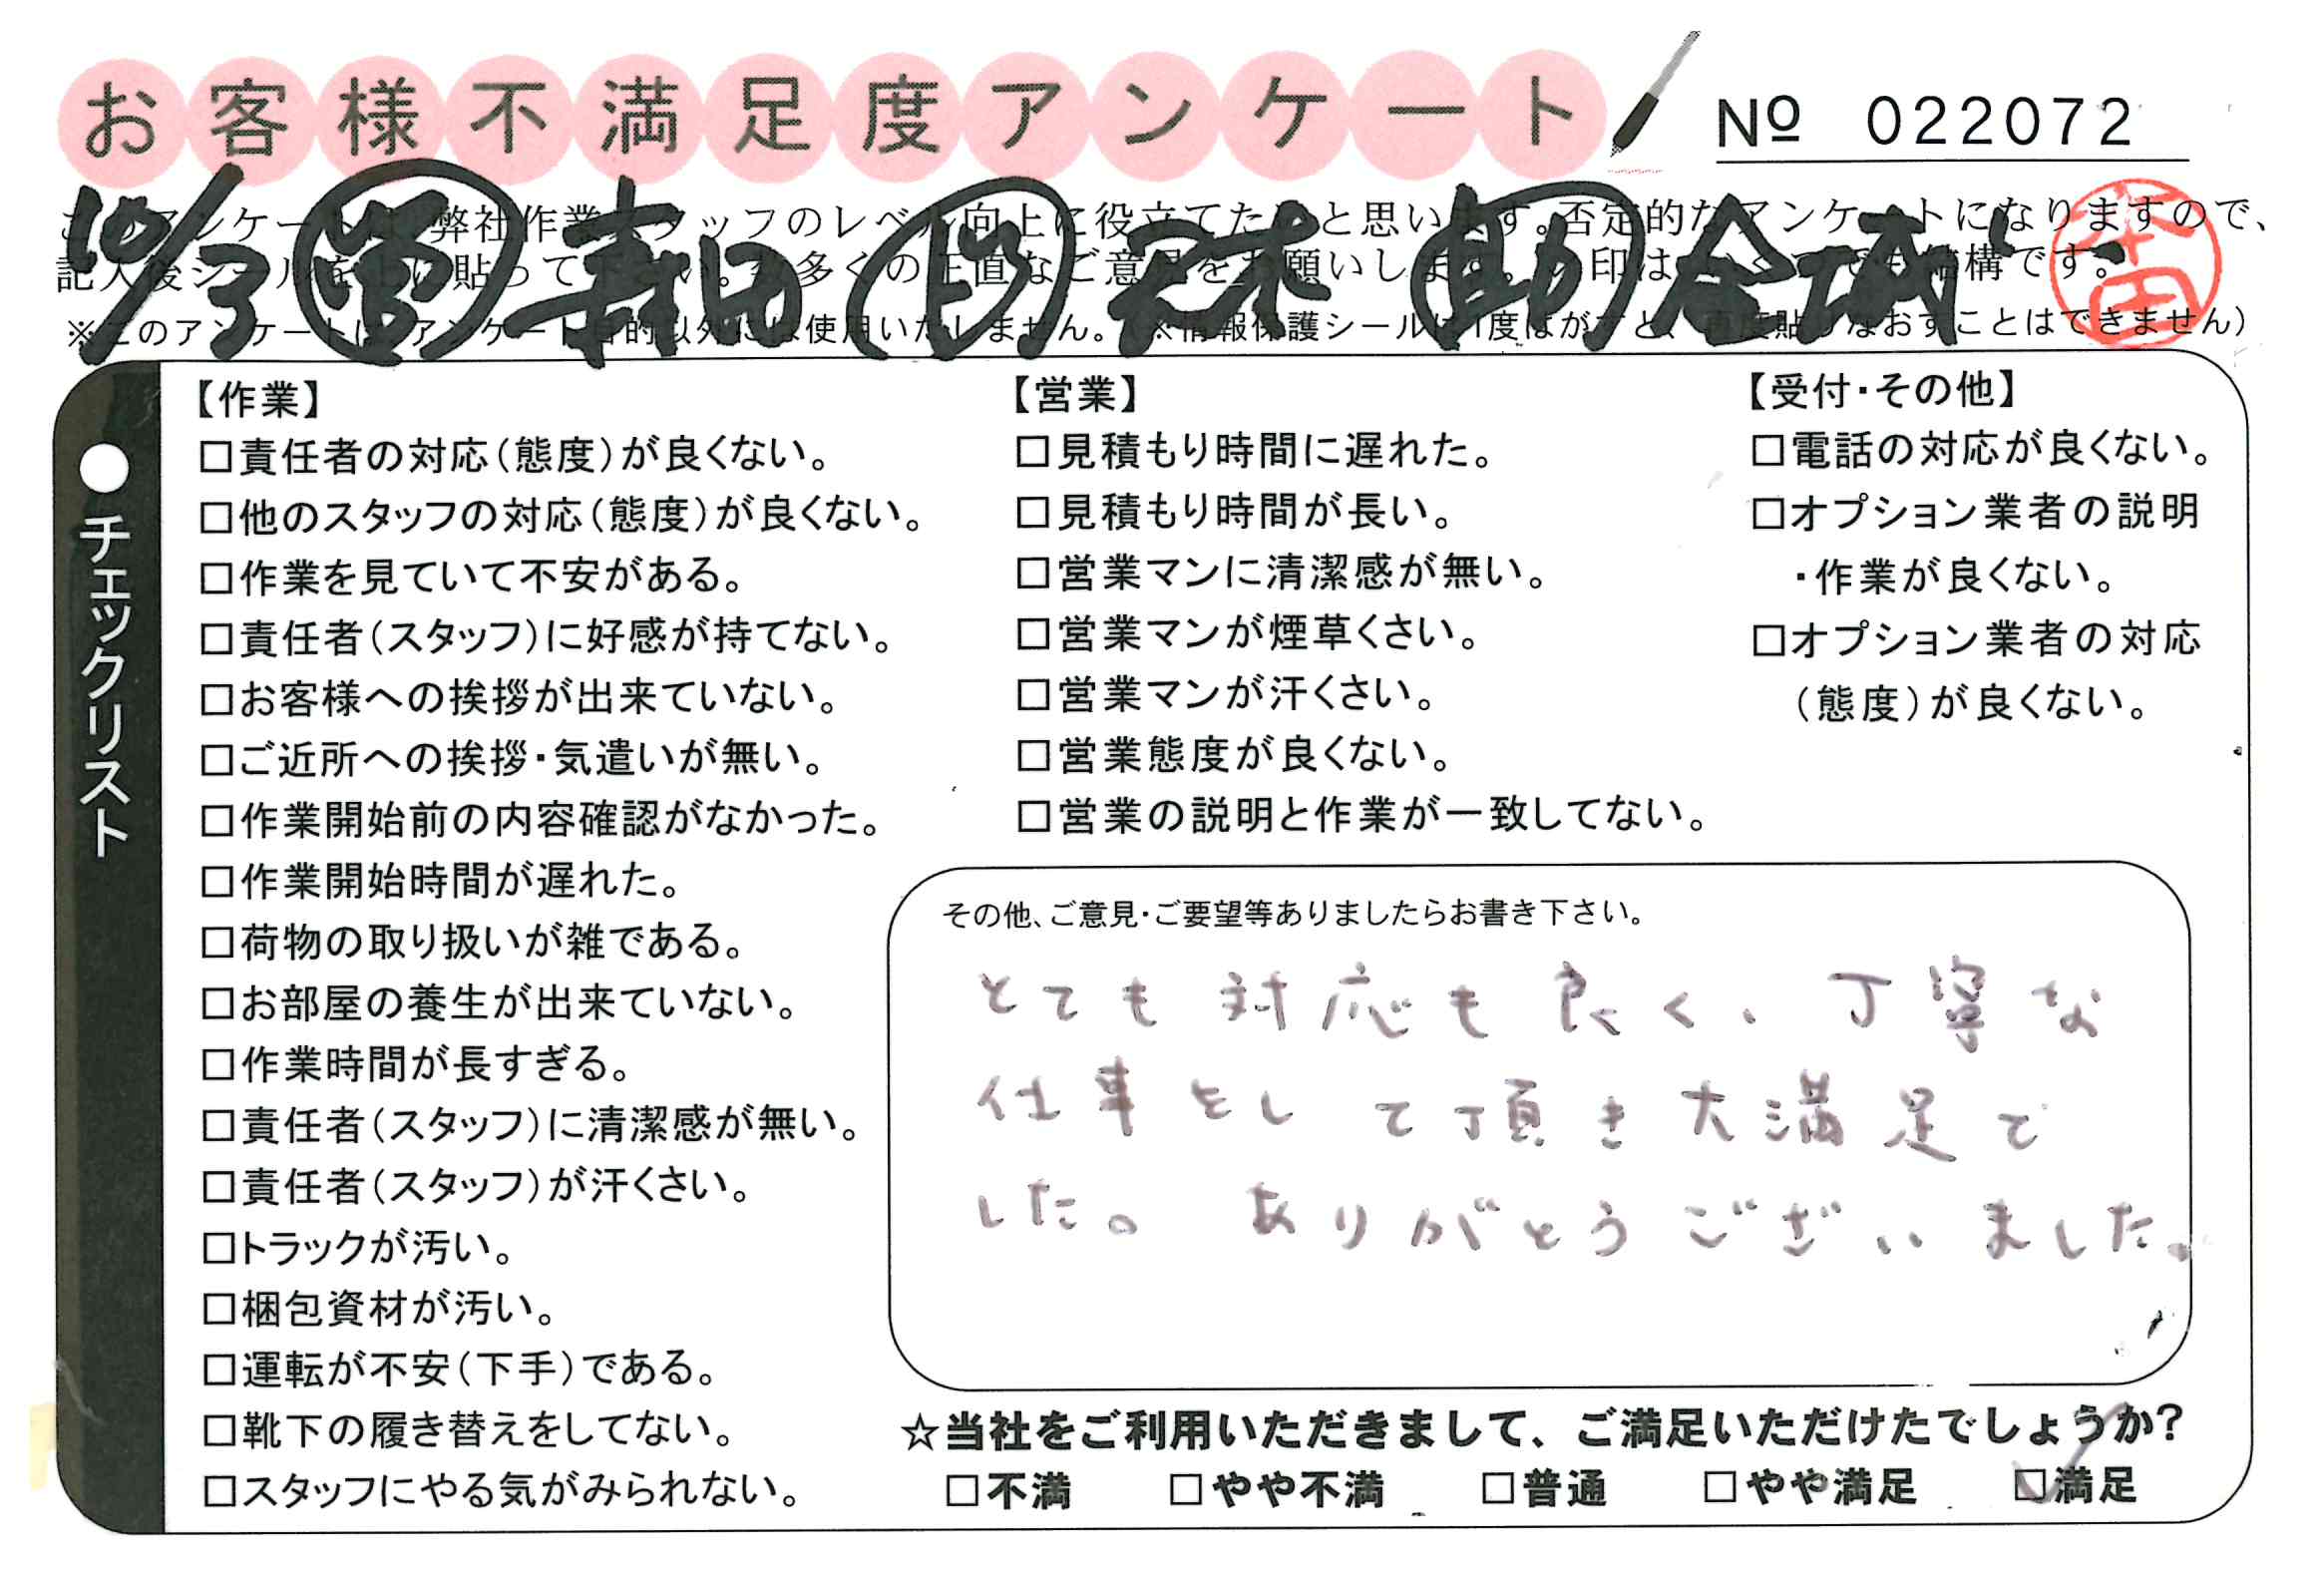 お客様不満足度アンケート
№ 022072
10/3 営 寿田 助 金城
このアンケートは、弊社作業スタッフのレベル向上に役立てたいと思います。否定的なアンケートになりますので、
記入後シールを上に貼って下さい。数多くの正直なご意見をお願いします。レ印はいくつでも結構です。
※このアンケートはアンケート目的以外には使用いたしません。（※情報保護シールは1度はがすと、再度貼りなおすことはできません）
●チェックリスト
【作業】
□責任者の対応（態度）が良くない。
□他のスタッフの対応（態度）が良くない。
□作業を見ていて不安がある。
□責任者（スタッフ）に好感が持てない。
□お客様への挨拶が出来ていない。
□ご近所への挨拶・気遣いが無い。
□作業開始前の内容確認がなかった。
□作業開始時間が遅れた。
□荷物の取り扱いが雑である。
□お部屋の養生が出来ていない。
□作業時間が長すぎる。
□責任者（スタッフ）に清潔感が無い。
□責任者（スタッフ）が汗くさい。
□トラックが汚い。
□梱包資材が汚い。
□運転が不安（下手）である。
□靴下の履き替えをしてない。
□スタッフにやる気がみられない。
【営業】
□見積もり時間に遅れた。
□見積もり時間が長い。
□営業マンに清潔感が無い。
□営業マンが煙草くさい。
□営業マンが汗くさい。
□営業態度が良くない。
□営業の説明と作業が一致してない。
【受付・その他】
□電話の対応が良くない。
□オプション業者の説明
・作業が良くない。
□オプション業者の対応
（態度）が良くない。
その他、ご意見・ご要望等ありましたらお書き下さい。
とても対応も良く、丁寧な
仕事をして頂き大満足で
した。ありがとうございました。
☆当社をご利用いただきまして、ご満足いただけたでしょうか？
□不満 □やや不満 □普通 □やや満足 ☑満足